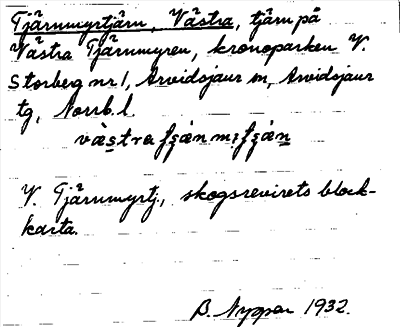 Tjärnmyrtjärn, Västra, tjärn på
Västra Tjärnmyren, kronoparken V.
Storberg nr 1, Arvidsjaur sn, Arvidsjaur
tg, Norrb. l.
V. Tjärnmyrtj., skogsrevirets block-
karta.
B. 1932.